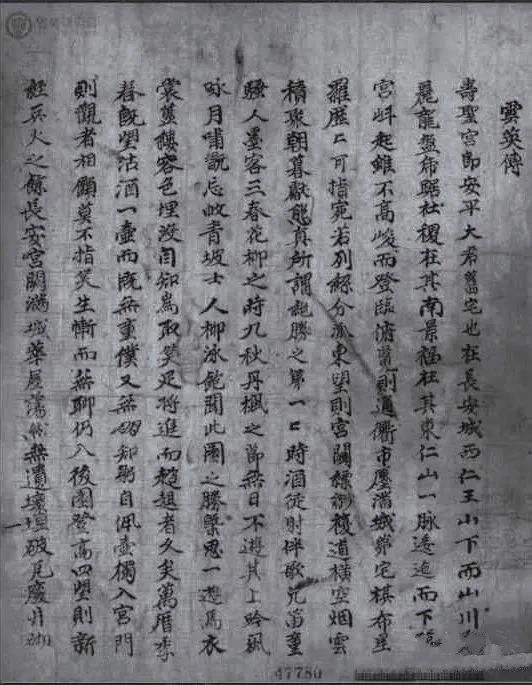 雲英傳
壽聖宮即安平大君舊宅也在長安城西仁王山下而山川
麗龍盤虎踞社稷在其南景福在其東仁山一脉逶迤而下
宮斗起雖不高峻而登臨俯覽則通衢市廛滿城第宅棋布星
羅歷〻可指宛若列分派東望則宮闕緲複道橫空烟雲
積翠朝暮獻態真所謂絶勝之第一〻時酒徒射伴歌兒笛童
騷人墨客三春花柳之時九秋丹楓之節無日不遊其上吟風
咏月嘯翫忘敀青坡士人柳泳飽聞此園之勝槩思一遊焉衣
裳藍縷容色埋沒自知爲取笑足將進而趑趄者久矣萬曆
春旣望沽酒一壺而旣無童僕又無知朋自佩壺獨入宮門
則觀者相顧莫不指笑生慚而無聊仍入後園登高四望則新
經兵火之餘長安宮闕滿城華屋蕩然無遺壞垣破瓦廢井
47780